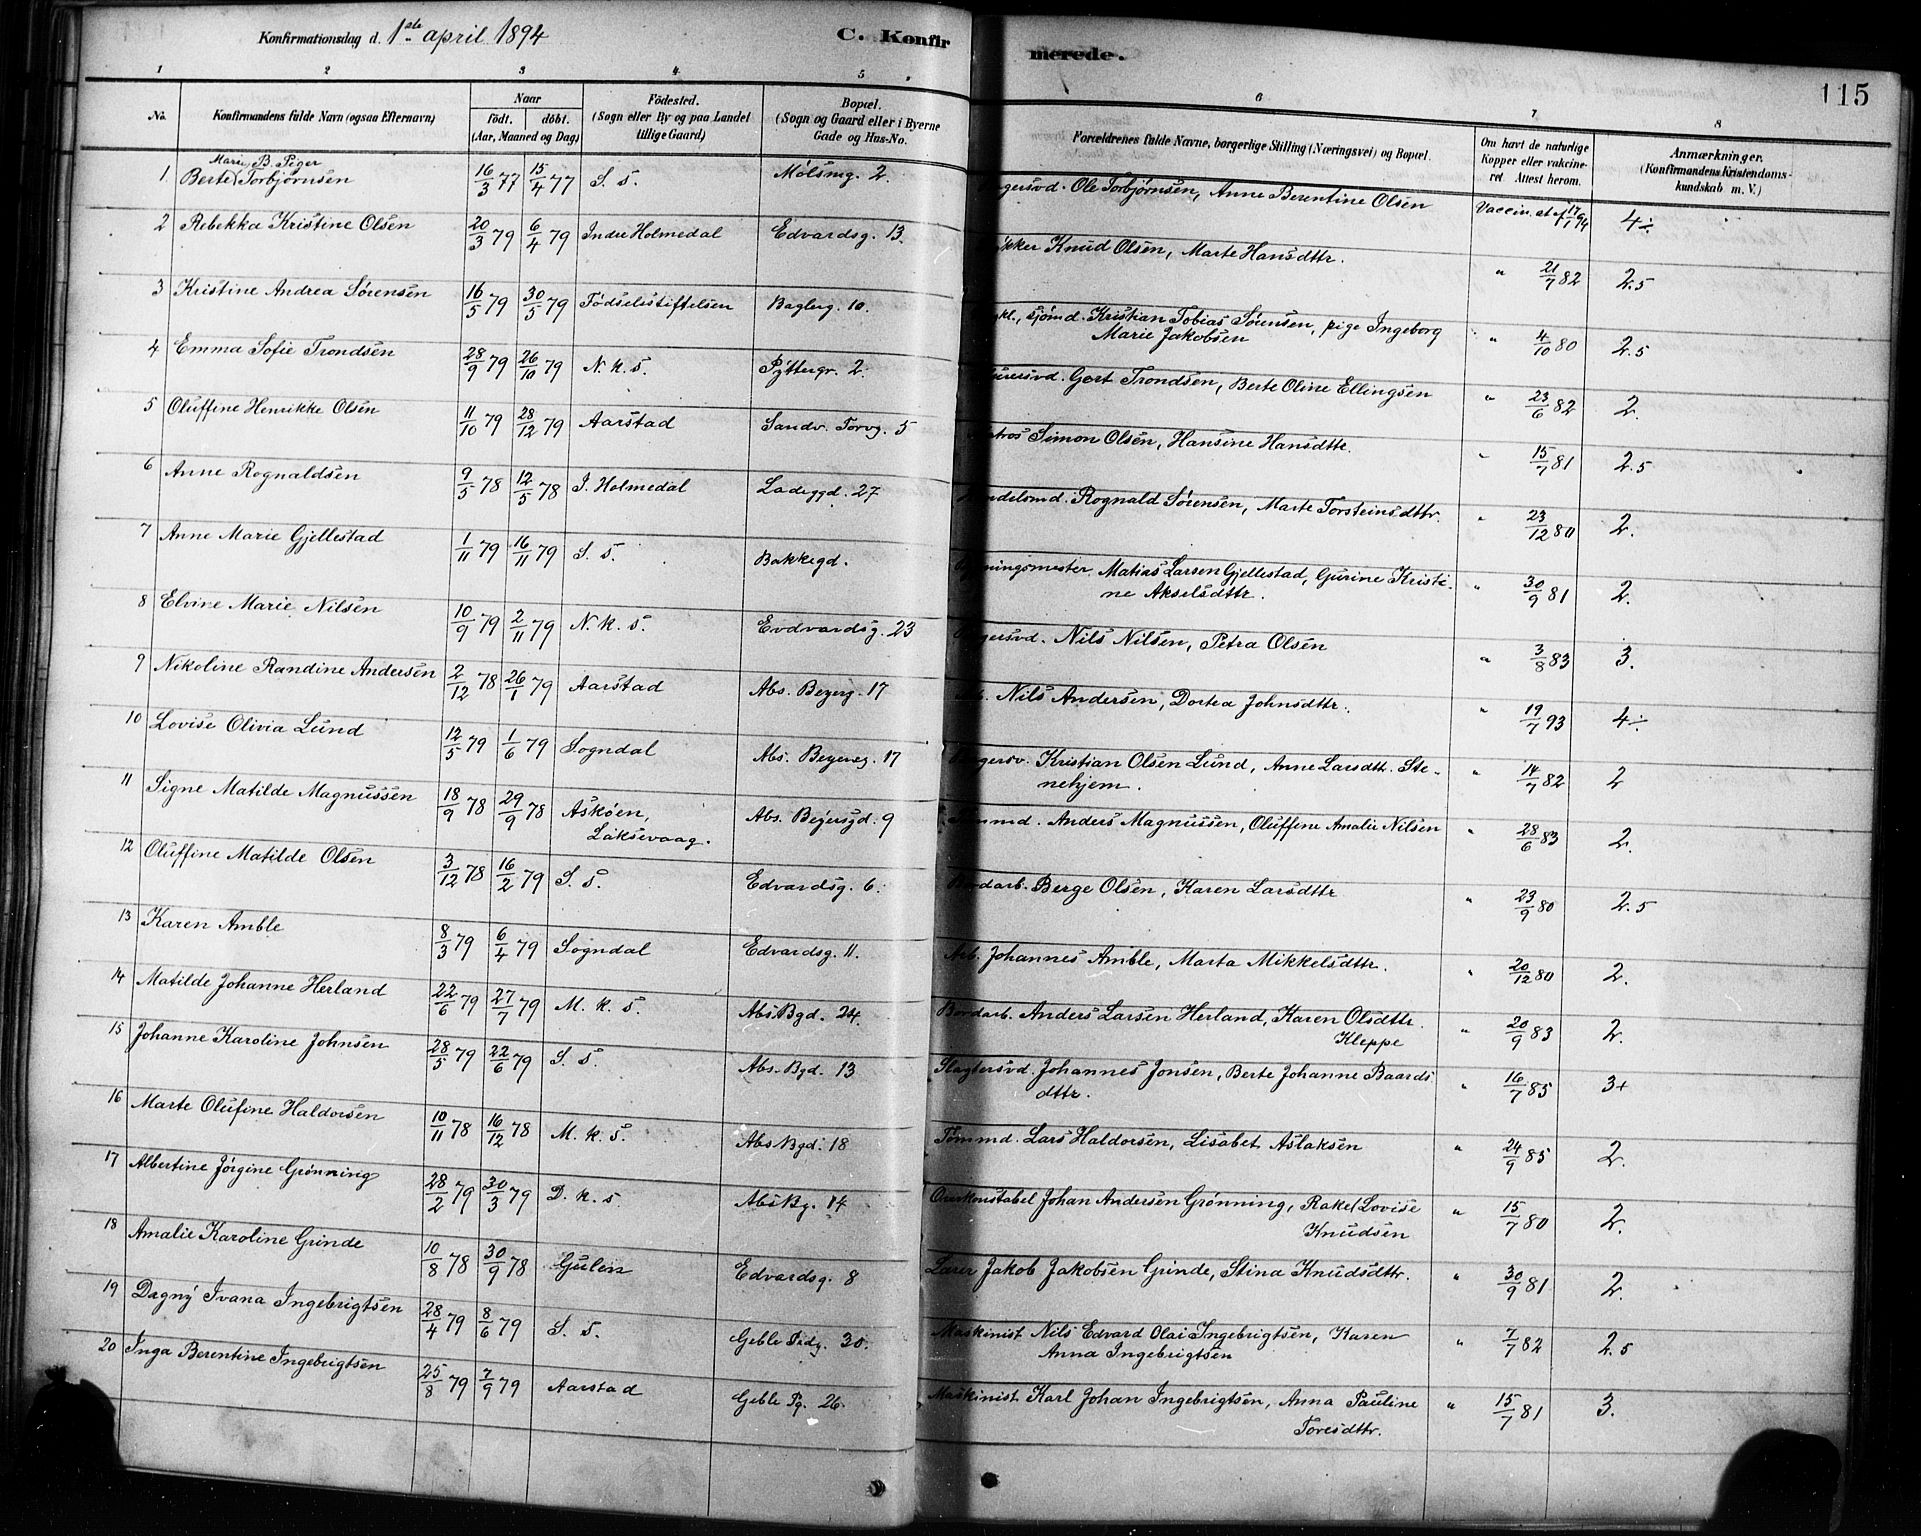 Konfirmationsdag d. 1ste april 1894
C. Konfir merede.
115
1 2 3 4 5 6 7 8
No. Konfirmandens fulde Navn (ogsaa Efternavn) Naar födt. döbt. (Aar, Maaned og Dag) Födested. (Sogn eller By og paa Landet tillige Gaard) Bopæl. (Sogn og Gaard eller i Byerne Gade og Hus-No. Forældrenes fulde Navne, borgerlige Stilling (Næringsvei) og Bopæl. Om havt de naturlige Kopper eller vakcineret. Attest herom. Anmærkninger. (Konfirmandens Kristendomskundskab m. V.)
B. Piger
1 Berte Marie Torbjørnsen 16/3 77 15/4 77 S. S. Mølsmg. 2. Ole Torbjørnsen, Anne Berentine Olsen Vaccin. at. 17/1 94 4÷
2 Rebekka Kristine Olsen 20/3 79 6/4 79 Indre Holmedal Edvardsg. 13. Knud Olsen, Marte Hansdttr. " 21/7 82 2.5
3 Kristine Andrea Sørensen 16/5 79 30/5 79 Fødselsstiftelsen Baglerg. 10. sjømd. Kristian Tobias Sørensen, pige Ingeborg
Marie Jakobsen " 4/10 80 2.5
4 Emma Sofie Trondsen 28/9 79 26/10 79 N. k. S. Pyttergr. 2. Gert Trondsen, Berte Oline Ellingsen " 23/6 82 2.
5 Oluffine Henrikke Olsen 11/10 79 28/12 79 Aarstad Sandv. Torvg. 5 Simon Olsen, Hansine Hansdttr. " 15/7 81 2.5
6 Anne Rognaldsen 9/5 78 12/5 78 I. Holmedal Ladeggd. 27 Rognald Sørensen, Marte Torsteinsdttr. " 23/12 80 2.
7 Anne Marie Gjellestad 1/11 79 16/11 79 S. S. Bakkegd. Matias Larsen Gjellestad, Gurine Kristi-
ne Akselsdttr. " 30/9 81 2.
8 Elvine Marie Nilsen 10/9 79 2/11 79 N. k. S. Evdvardsg. 23 Nils Nilsen, Petra Olsen " 3/8 83 3.
9 Nikoline Randine Andersen 2/12 78 26/1 79 Aarstad Abs. Beyerg. 17 Nils Andersen, Dortea Johnsdttr. " 19/7 93 4÷
10 Lovise Olivia Lund 12/5 79 1/6 79 Sogndal Abs. Beyersg. 17 Kristian Olsen Lund, Anne Larsdttr. Ste-
nehjem. " 14/7 82 2
11 Signe Matilde Magnussen 18/9 78 29/9 78 Askøen, Laksevaag. Abs. Beyersgd. 9 Anders Magnussen, Oluffine Amalie Nilsen " 28/6 83 2.
12 Oluffine Matilde Olsen 3/12 78 16/2 79 S. S. Edvardsg. 6. Bordarb. Berge Olsen, Karen Larsdttr " 23/9 80 2.5
13 Karen Amble 8/3 79 6/4 79 Sogndal Edvardsg. 11. Arb. Johannes Amble, Marta Mikkelsdttr. " 20/12 80 2.
14 Matilde Johanne Herland 22/6 79 27/7 79 M. k. S. Abs Bgd. 24. Bordarb. Anders Larsen Herland, Karen Olsdttr.
Kleppe " 20/9 83 2.
15 Johanne Karoline Johnsen 28/5 79 22/6 79 S. S. Abs. Bgd. 13 Slagtersvd. Johannes Jonsen, Berte Johanne Baards
dttr. " 16/7 85 3+
16 Marte Olufine Haldorsen 10/11 78 16/12 78 M. k. S. Abs Bgd. 18 Tømmd. Lars Haldorsen, Lisabet Aslaksen " 24/9 85 2.
17 Albertine Jørgine Grønning 28/2 79 30/3 79 D. k. S Abs By. 14 Overkonstabel Johan Andersen Grønning, Rakel Lovise
Knudsen " 15/7 80 2.
18 Amalie Karoline Grinde 10/8 78 30/9 78 Gulen Edvardsg. 8 Lærer Jakob Jakobsen Grinde, Stina Knudsdttr. " 30/9 81 2.
19 Dagny Ivana Ingebrigtsen 28/4 79 8/6 79 S. S. Geble Pedg. 30. Maskinist Nils Edvard Olai Ingebrigtsen, Karen
Anna Ingebrigtsen " 7/7 82 2.5
20 Inga Berentine Ingebrigtsen 25/8 79 7/9 79 Aarstad Geble Pg. 26. Maskinist Karl Johan Ingebrigtsen, Anna Pauline
Toresdttr. " 15/7 81 3.